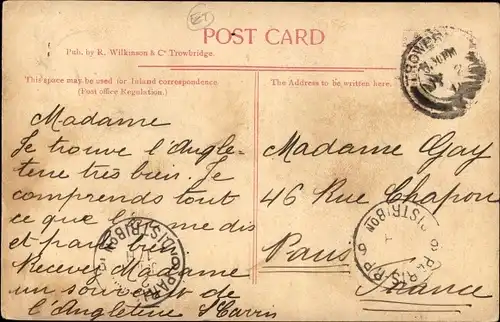 POST CARD
Pub. by R. Wilkinson & Co Trowbridge.
This space may be used for Inland correspondence
(Post office Regulation.)
The Address to be written here.
TROWBR
Madame
Je trouve l'Angle-
terre très bien. Je
comprends tout
ce que l'on me dis
et parle bien
Recevez Madame
un souvenir de
l'Angleterre
Madame Gay
46 Rue Chapon
Paris
France
PARIS
DISTRIBON
PARIS R.P.
DISTRIBON